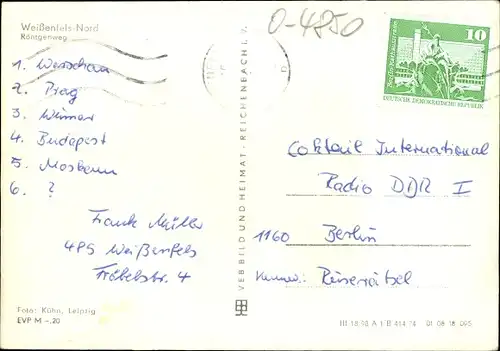 Weißenfels-Nord
Röntgenweg
O-4850
1. Warschau
2. Prag
3. Weimar
4. Budapest
5. Moskau
6. ?
Frank Müller
485 Weißenfels
Fröbelstr. 4
Foto: Kühn, Leipzig
EVP M -,20
VEB BILD UND HEIMAT · REICHENBACH I. V.
10
DEUTSCHE DEMOKRATISCHE REPUBLIK
Cocktail International
Radio DDR I
1160 Berlin
Kennw.: Reiserätsel